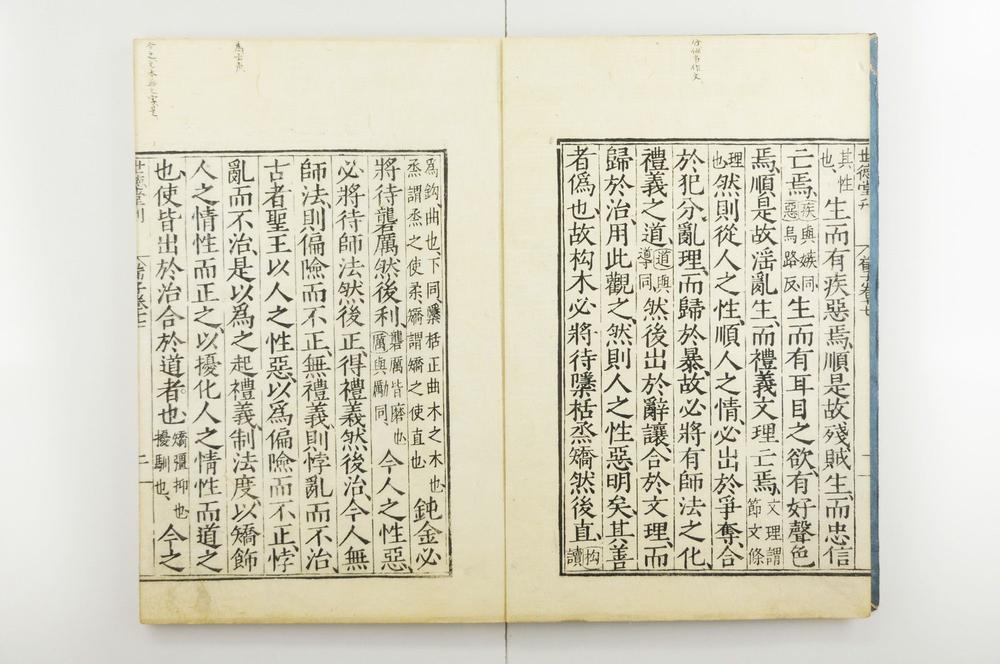 世德堂刊
其性也生而有疾惡焉順是故殘賊生而忠信
亡焉疾與嫉同惡烏路反生而有耳目之欲有好聲色
焉順是故淫亂生而禮義文理亡焉文理謂節文條
理也然則從人之性順人之情必出於爭奪合
於犯分亂理而歸於暴故必將有師法之化
禮義之道道與導同然後出於辭讓合於文理而
歸於治用此觀之然則人之性惡明矣其善
者僞也故枸木必將待檃栝烝矯然後直枸讀
爲鉤曲也下同檃栝正曲木之木也烝謂烝之使柔矯謂矯之使直也鈍金必
將待礱厲然後利礱厲皆磨也厲與勵同今人之性惡
必將待師法然後正得禮義然後治今人無
師法則偏險而不正無禮義則悖亂而不治
古者聖王以人之性惡以爲偏險而不正悖
亂而不治是以爲之起禮義制法度以矯飾
人之情性而正之以擾化人之情性而道之
也使皆出於治合於道者也矯彊抑也擾馴也今之
世德堂刊